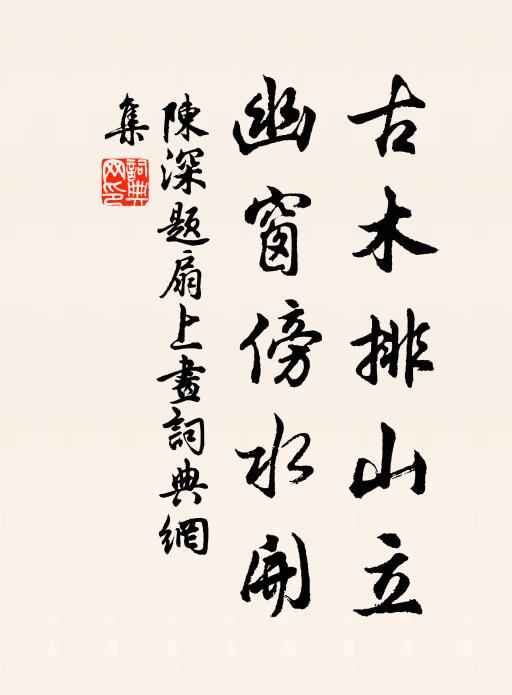 古木排山立
幽窗傍水開
陳深題扇上畫詞典網
集
詞典
網印